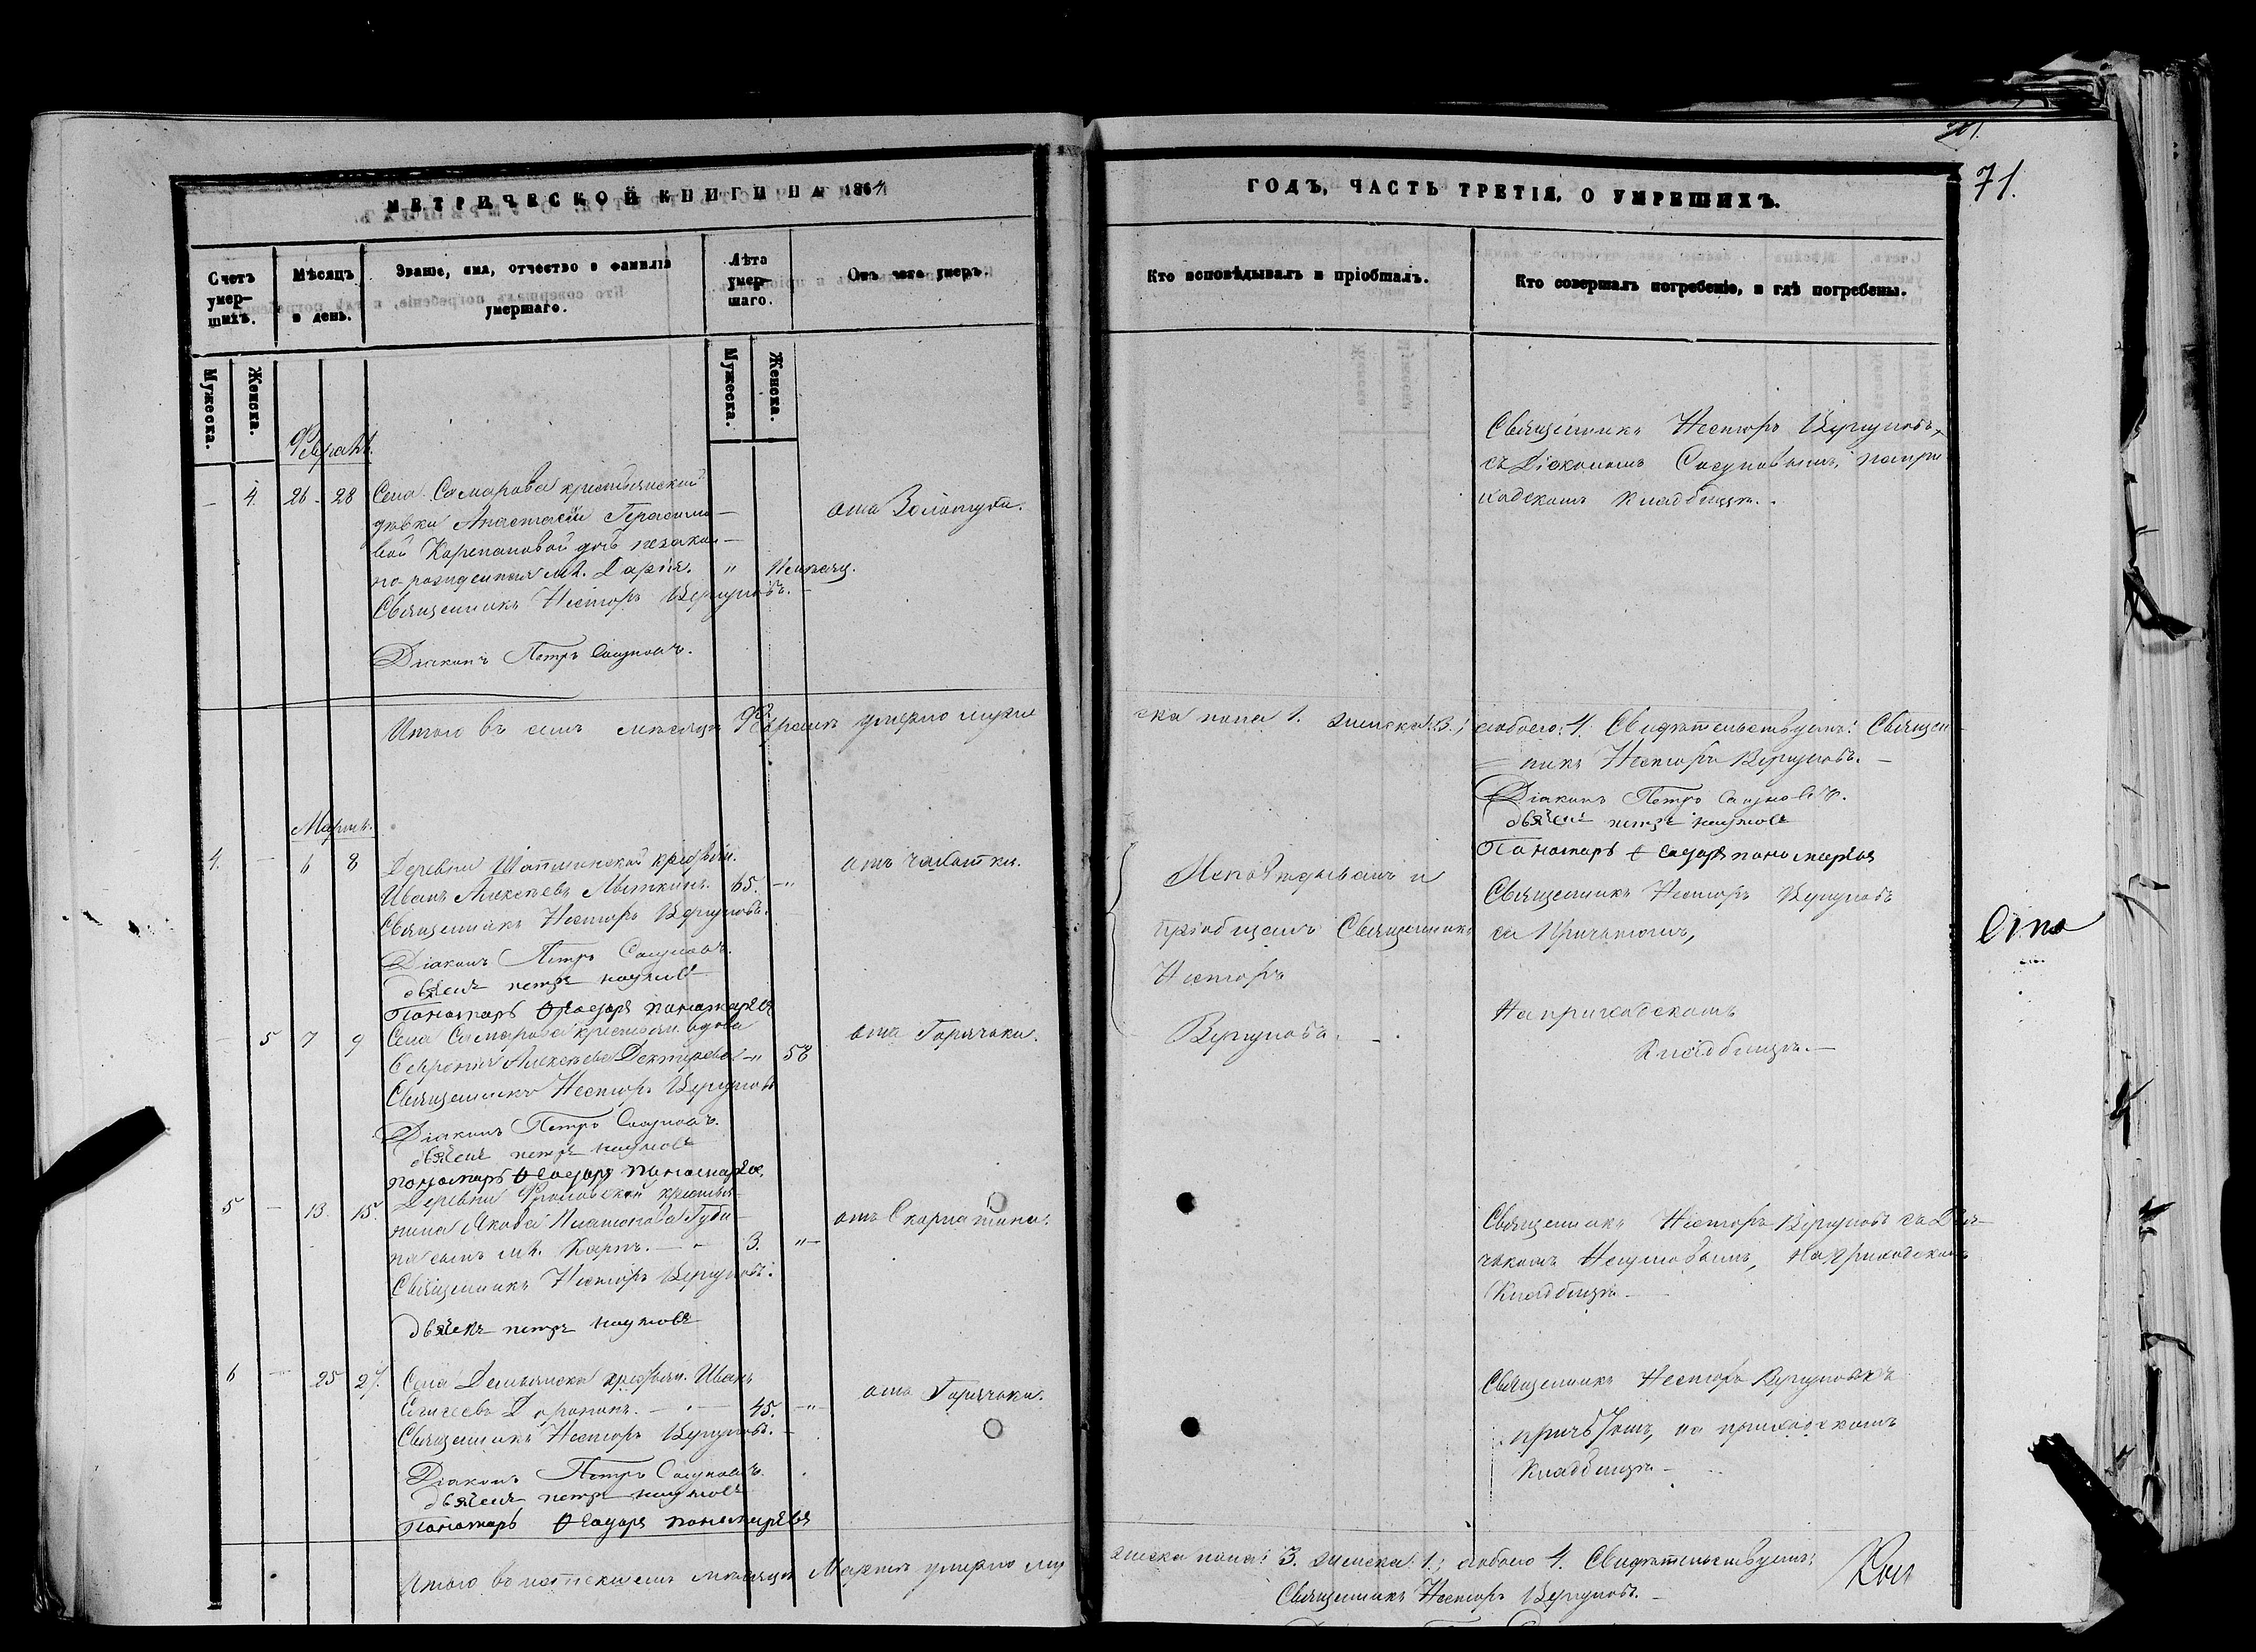 71.
МЕТРИЧЕСКОЙ КНИГИ НА 1864
ГОДЪ, ЧАСТЬ ТРЕТІЯ, О УМЕРШИХЪ.
Счетъ умер-
шихъ.
Мѣсяцъ
и день.
Званіе, имя, отчество и фамилія
умершаго.
Лѣта
умер-
шаго.
Отъ чего умеръ.
Кто исповѣдывалъ и пріобщалъ.
Кто совершалъ погребеніе, и гдѣ погребены.
Мужеска.
Женска.
Мужеска.
Женска.
Февраль.
— 4. 26 - 28 Села Самарова крестьянской
дѣвки Анастасіи Герасимо-
вой Корепановой дочь незакон-
но-рожденная мл. Дарія. " Не
Священникъ Несторъ Вергуновъ.
Діаконъ Петръ
отъ Золотухи.
Священникъ Несторъ Вергуновъ,
съ Діакономъ на при
ходскомъ Кладбищѣ.
Итого въ семъ мѣсяцѣ Февралѣ умерло муже
ска пола 1. женска: 3.; обоего: 4. Свидѣтельствуемъ: Священ-
никъ Несторъ Вергуновъ.
Діаконъ Петръ
дьячекъ петръ наумовъ
Пономарь Ѳеодоръ пономаревъ
Мартъ.
4. — 6 8 Деревни крестьян.
Иванъ Алексѣевъ 65. — "
Священникъ Несторъ Вергуновъ.
Діаконъ Петръ
дьячекъ петръ наумовъ
Пономарь Ѳеодоръ пономаревъ
отъ чахотки.
Исповѣдывалъ и
пріобщалъ Священникъ
Несторъ
Вергуновъ.
Священникъ Несторъ Вергуновъ
съ Причтомъ,
На приходскомъ
Кладбищѣ.—
— 5 7 9 Села Самарова крестьян. вдова
Алексѣева — " 58
Священникъ Несторъ Вергуновъ
Діаконъ Петръ
дьячекъ петръ наумовъ
пономарь Ѳеодоръ пономаревъ
отъ Горячки.
5 — 13. 15. Деревни Фроловской крестья-
нина Якова Платонова Губи-
на сынъ мл. Карпъ. — 3. " —
Священникъ Несторъ Вергуновъ.
дьячекъ петръ наумовъ
отъ Скарлатины.
Священникъ Несторъ Вергуновъ съ Дья-
чкомъ Наумовымъ, На приходскомъ
Кладбищѣ—
6 — 25 27. Села Демьянска крестьян. Иванъ
45. — "
Священникъ Несторъ Вергуновъ.
Діаконъ Петръ
дьячекъ петръ наумовъ
Пономарь Ѳеодоръ пономаревъ
отъ Горячки.
Священникъ Несторъ Вергуновъ съ
причтомъ, на приходскомъ
Кладбищѣ—
Итого во истекшемъ мѣсяцѣ Мартѣ умерло му
жеска пола: 3. женска: 1.; обоего 4. Свидѣтельствуемъ:
Священникъ Несторъ Вергуновъ.—